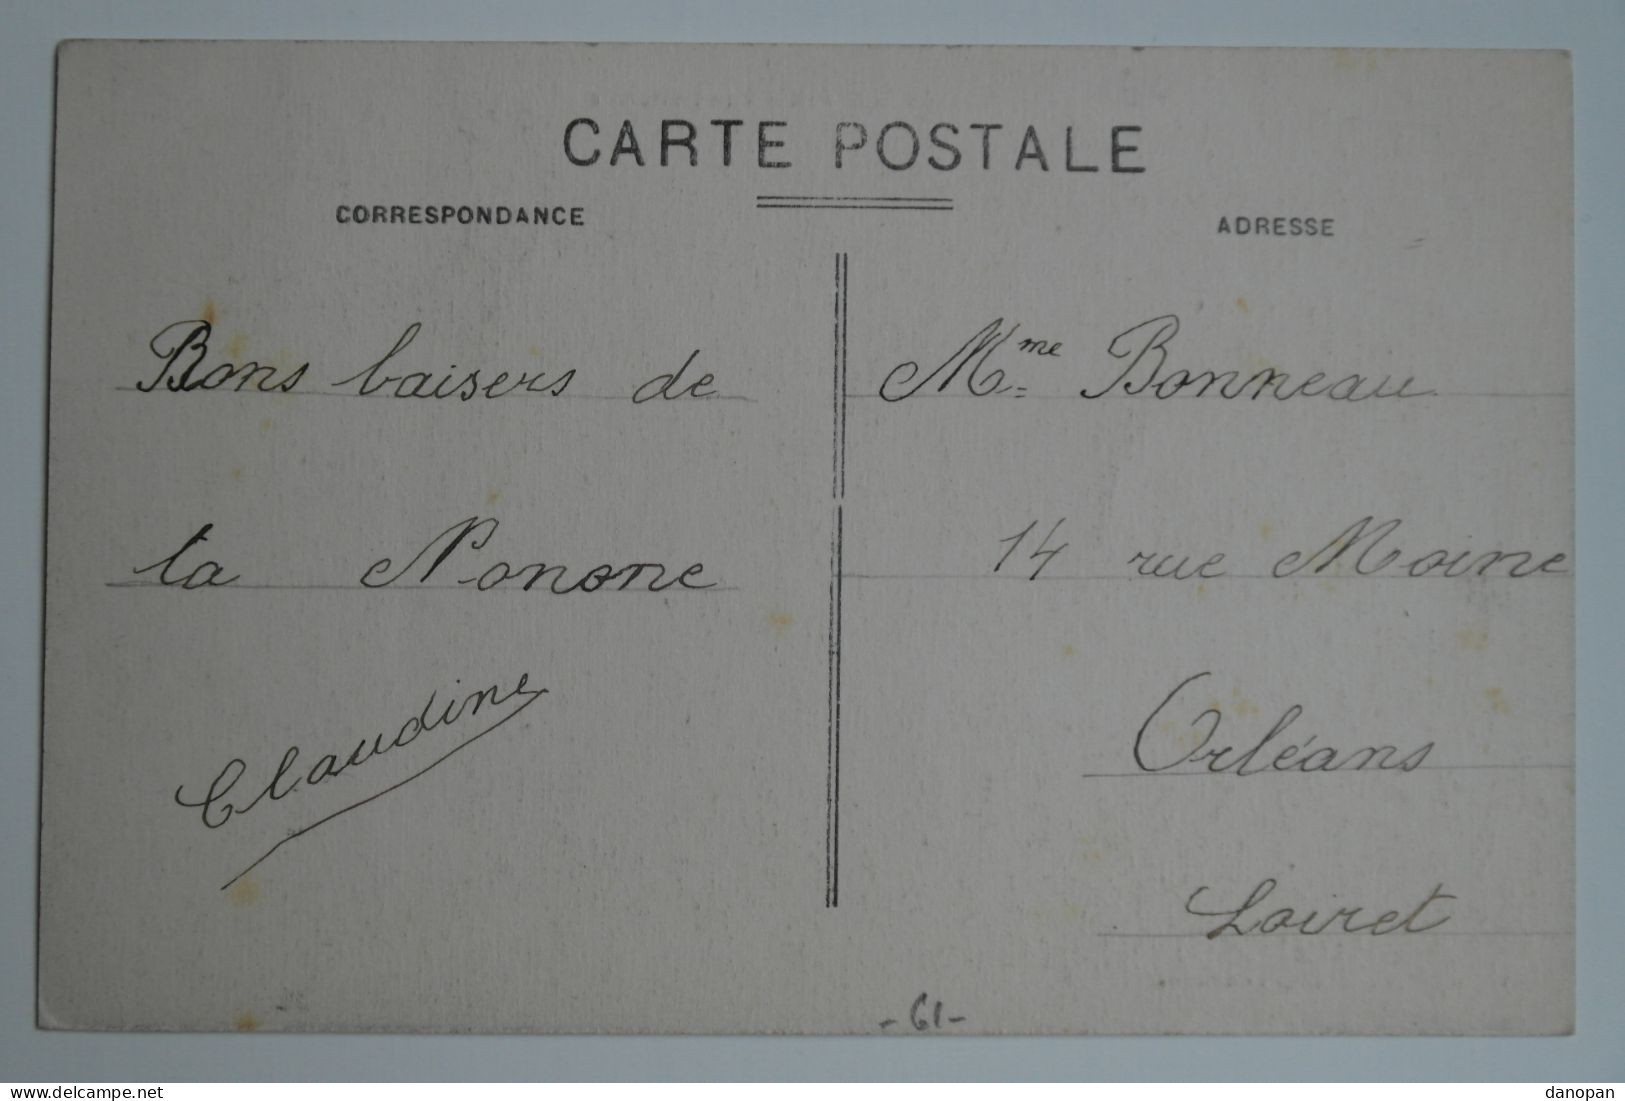 CARTE POSTALE
CORRESPONDANCE
ADRESSE
Bons baisers de
la Nonone
Claudine
Mme Bonneau
14 rue Moine
Orléans
Loiret
- 61 -
www.delcampe.net
danopan